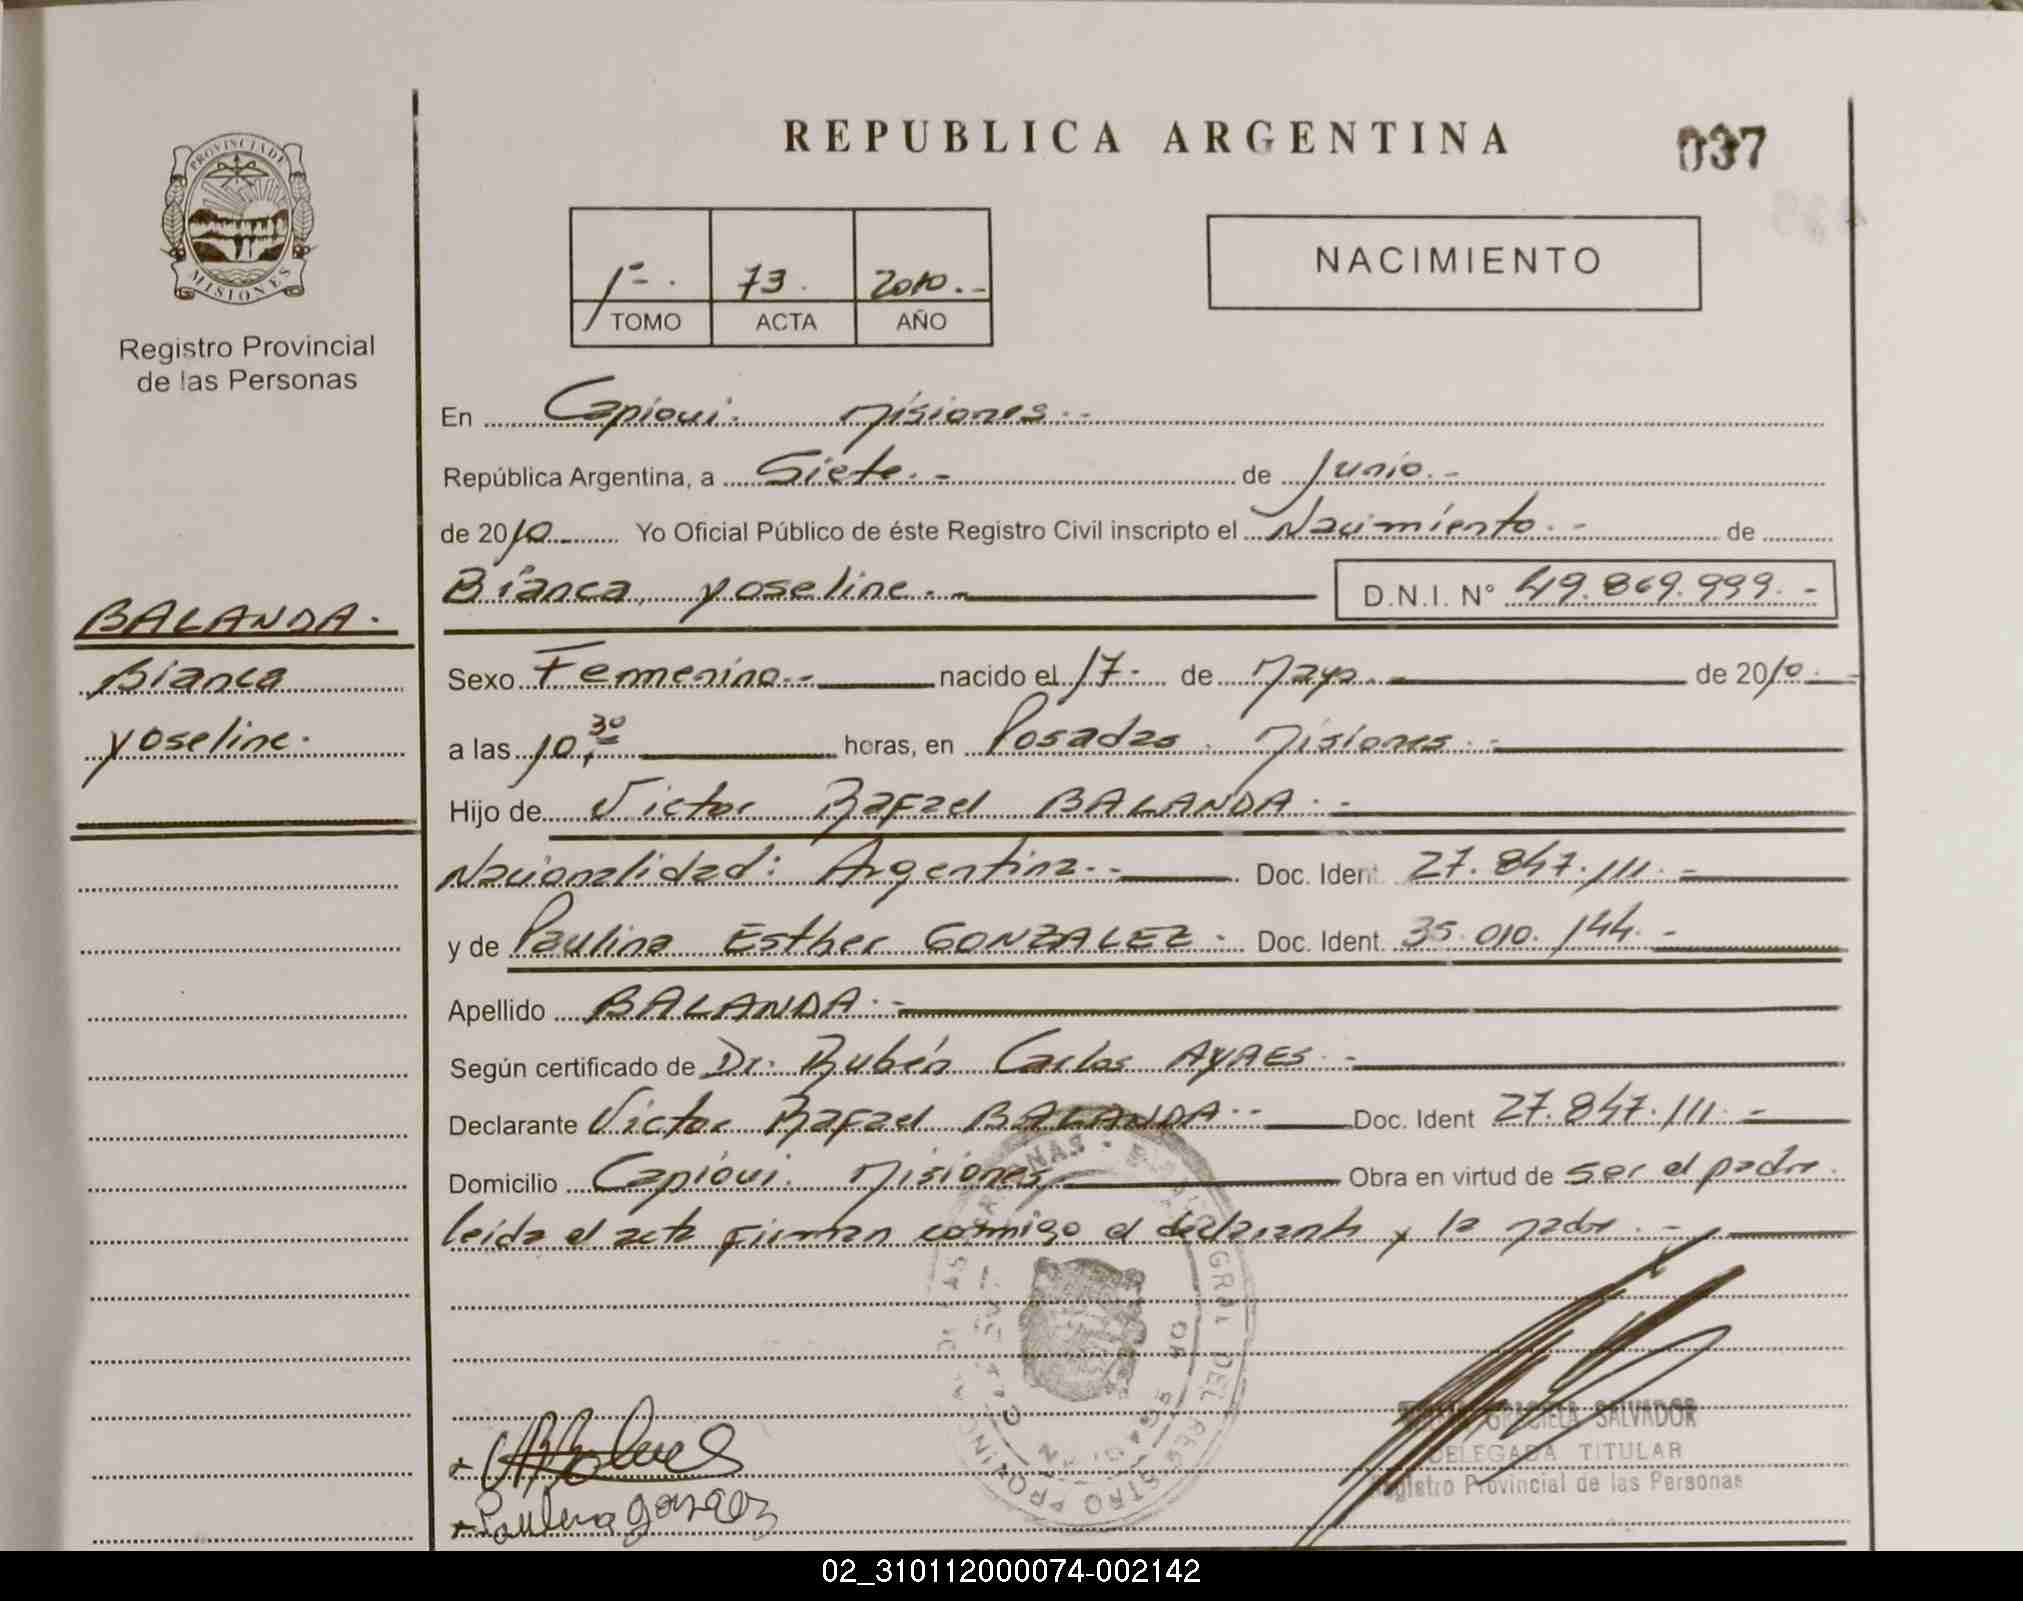 REPUBLICA ARGENTINA
037
PROVINCIA DE
MISIONES
Registro Provincial
de las Personas
1º. 73. 2010.-
TOMO ACTA AÑO
NACIMIENTO
En Capioui. Misiones.-
República Argentina, a Siete.- de Junio.-
de 2010 Yo Oficial Público de éste Registro Civil inscripto el Nacimiento.- de
Bianca yoseline.- D.N.I. Nº 49.869.999.-
BALANDA.
Bianca
yoseline.
Sexo Femenino.- nacido el 17- de Mayo.- de 2010.-
a las 10,30 horas, en Posadas. Misiones.-
Hijo de Victor Rafael BALANDA.-
Nacionalidad: Argentina.- Doc. Ident. 27.847.111.-
y de Paulina Esther GONZALEZ.- Doc. Ident. 35.010.144.-
Apellido BALANDA.-
Según certificado de Dr. Rubén Carlos AYRES.-
Declarante Victor Rafael BALANDA.- Doc. Ident 27.847.111.-
Domicilio Capioui. Misiones Obra en virtud de ser el padre.
leida el acta firman conmigo el declarante y la madre.-
GRACIELA SALVADOR
DELEGADA TITULAR
Registro Provincial de las Personas
Paulina gonzalez
02_310112000074-002142